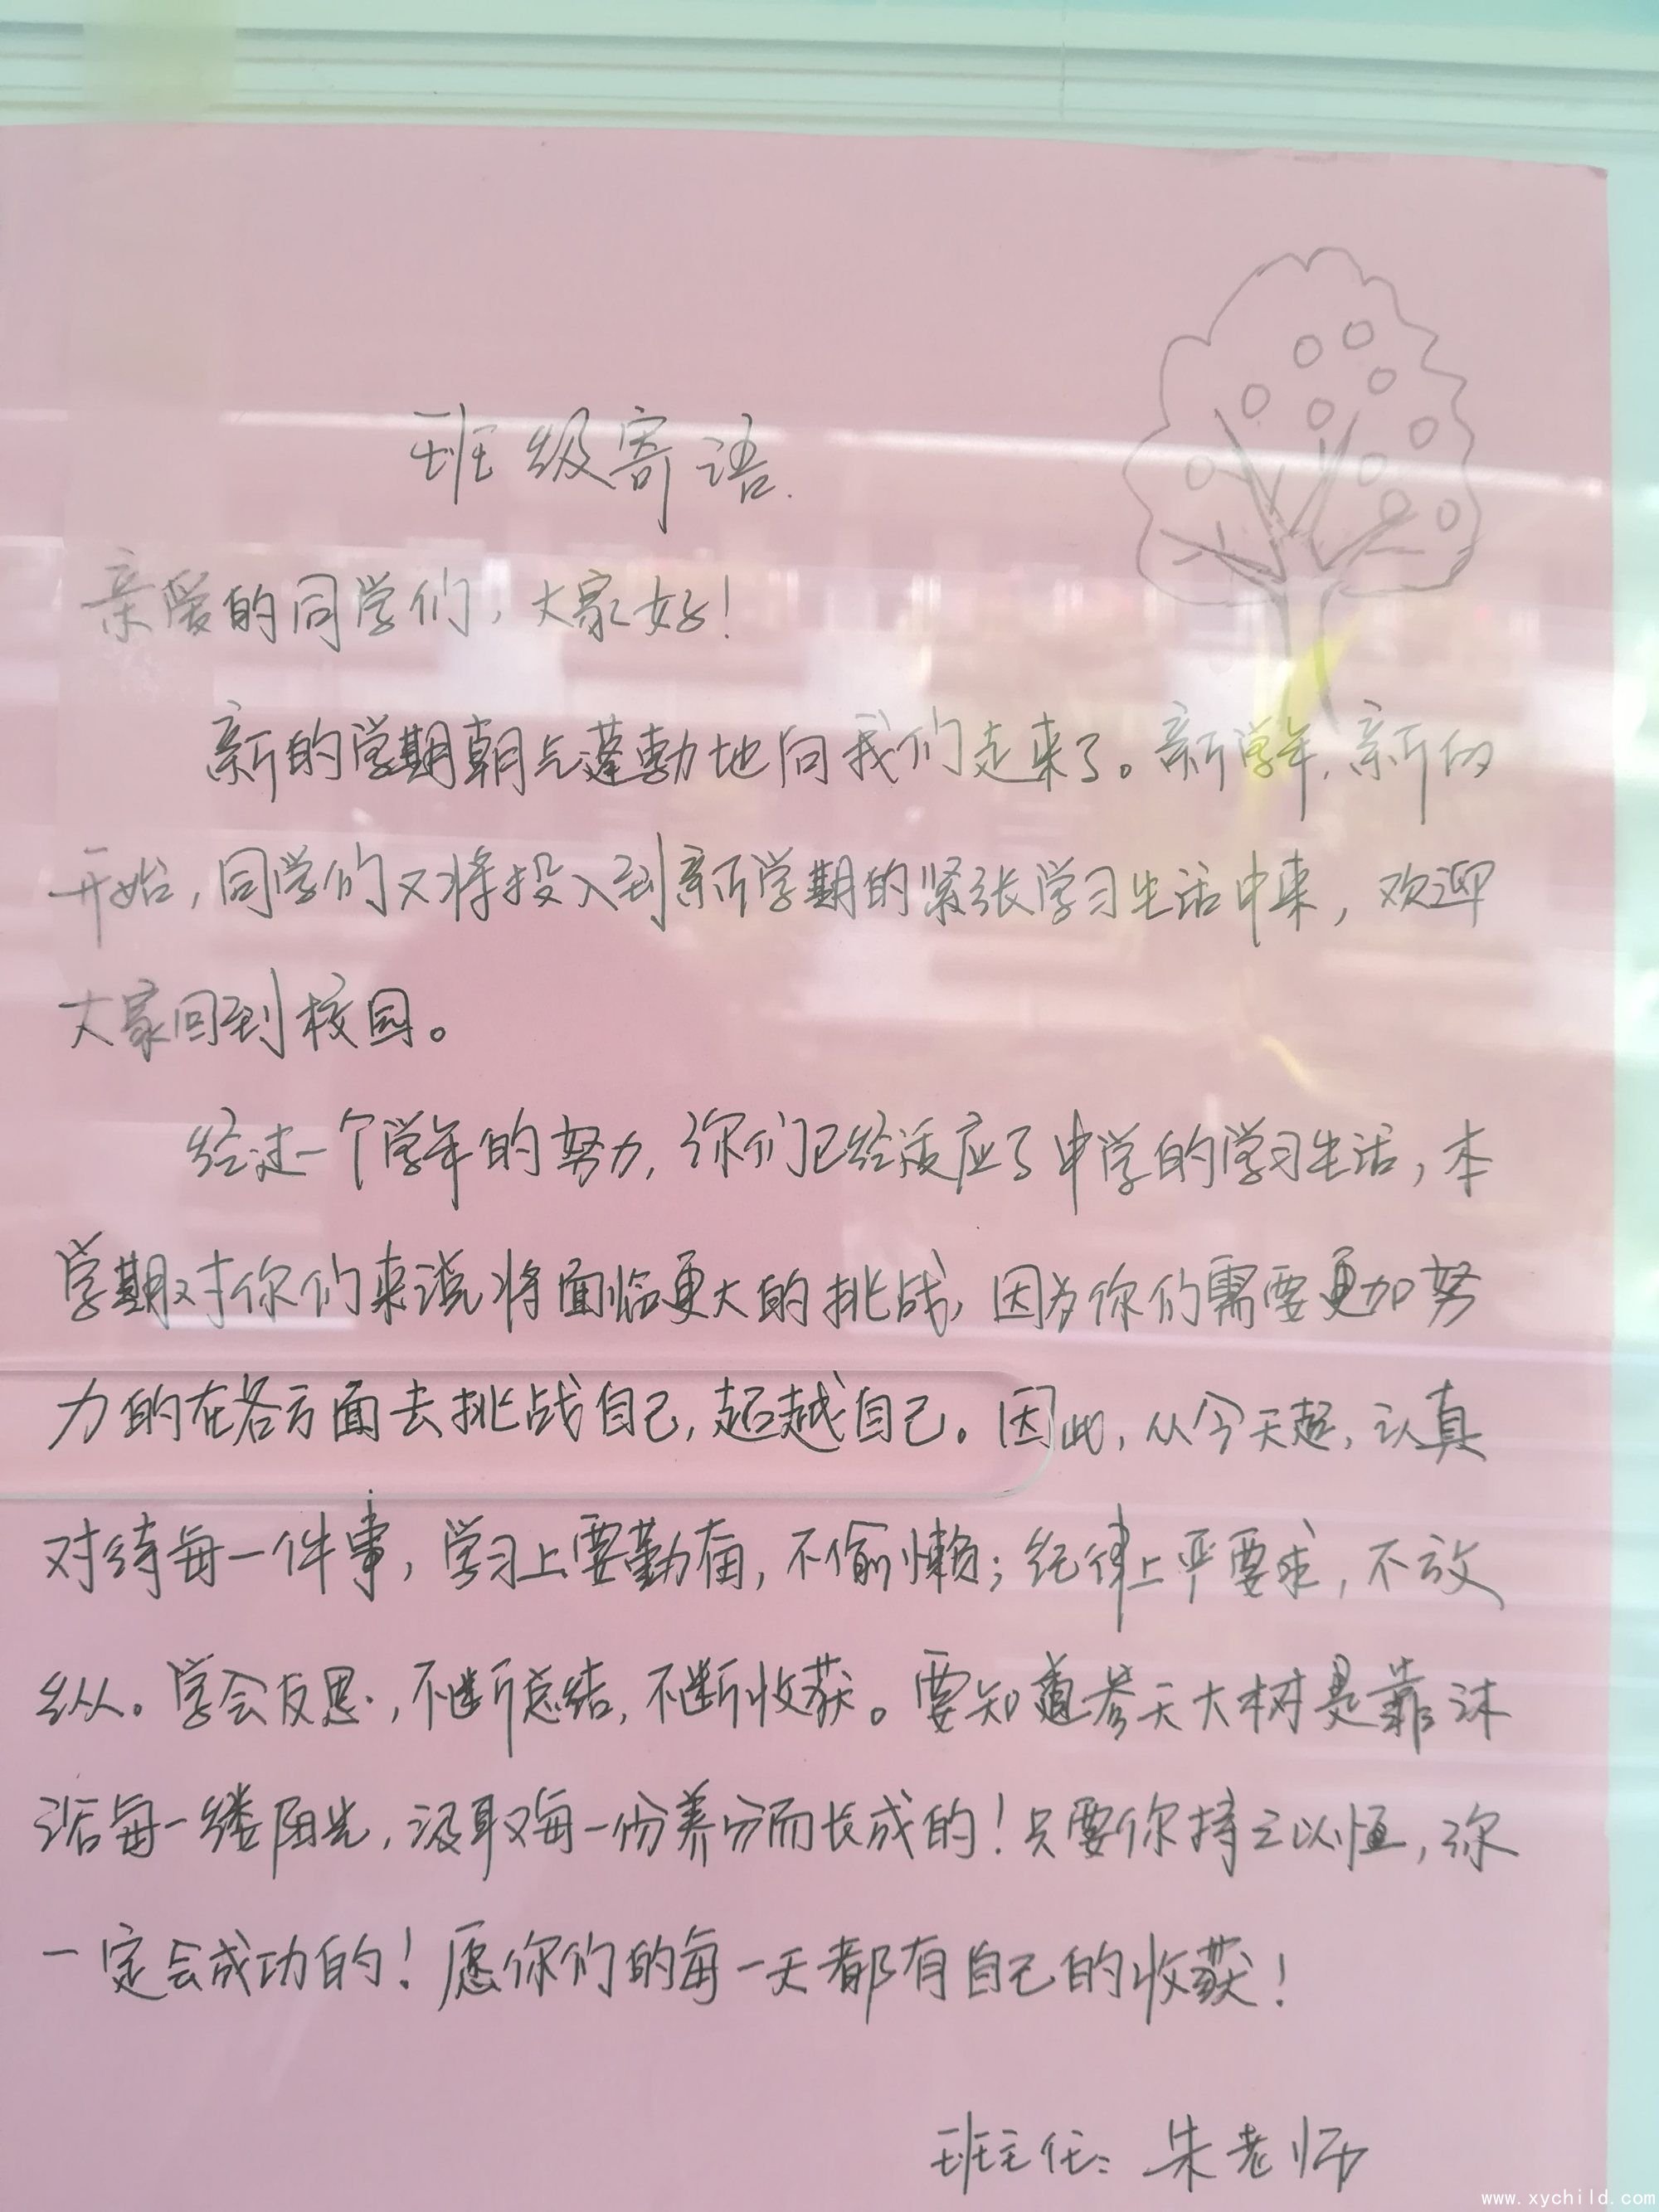 班级寄语.
亲爱的同学们，大家好！
新的学期朝气蓬勃地向我们走来了。新学年，新的
开始，同学们又将投入到新学期的紧张学习生活中来，欢迎
大家回到校园。
经过一个学年的努力，你们已经适应了中学的学习生活，本
学期对你们来说将面临更大的挑战，因为你们需要更加努
力的在各方面去挑战自己，超越自己。因此，从今天起，认真
对待每一件事，学习上要勤奋，不偷懒；纪律上严要求，不放
纵。学会反思，不断总结，不断收获。要知道参天大树是靠沐
浴每一缕阳光，汲取每一份养分而长成的！只要你持之以恒，你
一定会成功的！愿你们的每一天都有自己的收获！
班主任：朱老师
www.xychild.com